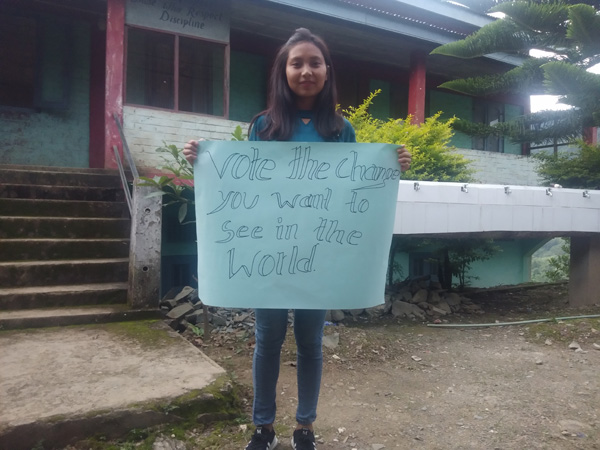 Discipline
Vote the change
you want to
see in the
World.